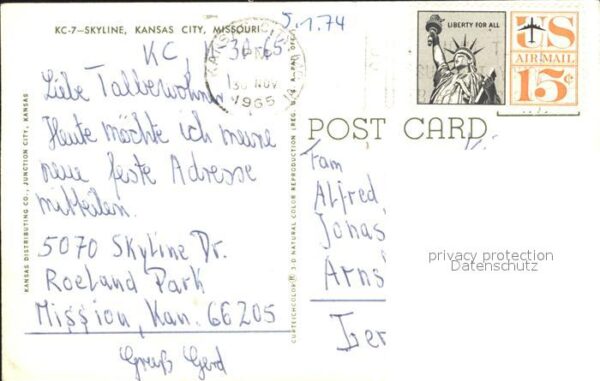 KC-7-SKYLINE, KANSAS CITY, MISSOURI
5.1.74
KC, 30.65
Liebe Talbewohner
Heute möchte ich meine
neue feste Adresse
mitteilen.
5070 Skyline Dr.
Roeland Park
Mission, Kan. 66205
Gruß Gerd
KANSAS DISTRIBUTING CO., JUNCTION CITY, KANSAS
30 NOV
1965
LIBERTY FOR ALL
US
AIR MAIL
15¢
POST CARD
CURTEICHCOLOR® 3-D NATURAL COLOR REPRODUCTION (REG. U.S.A. PAT. OFF.)
Fam
Alfred
Jonas
Arns
Ger
privacy protection
Datenschutz